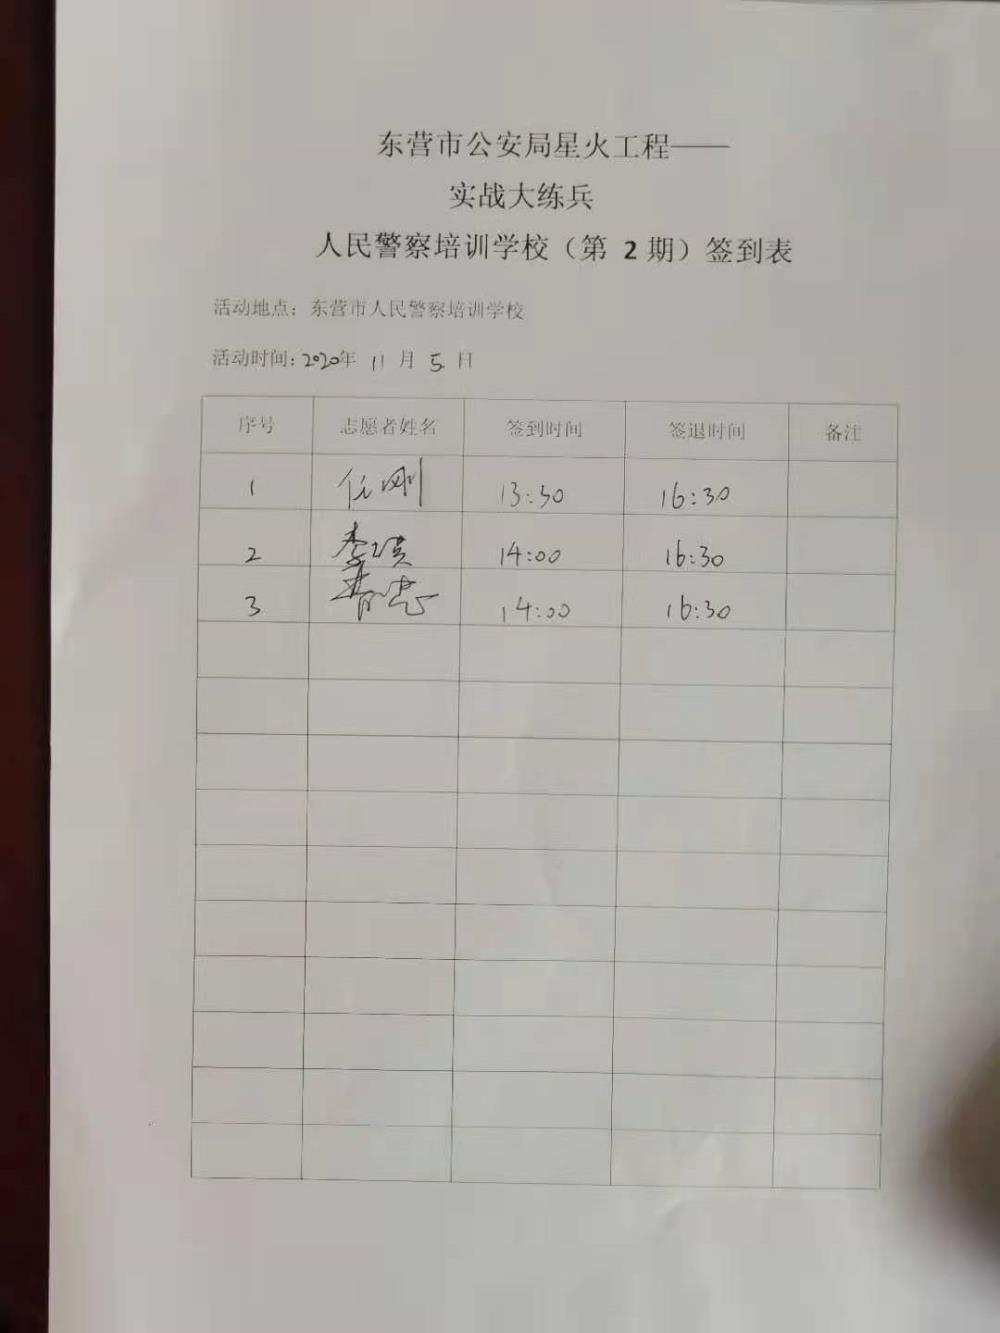 东营市公安局星火工程——
实战大练兵
人民警察培训学校（第 2 期）签到表
活动地点：东营市人民警察培训学校
活动时间：2020年 11 月 5 日
序号 志愿者姓名 签到时间 签退时间 备注
1 任刚 13:30 16:30
2 李 14:00 16:30
3 14:00 16:30